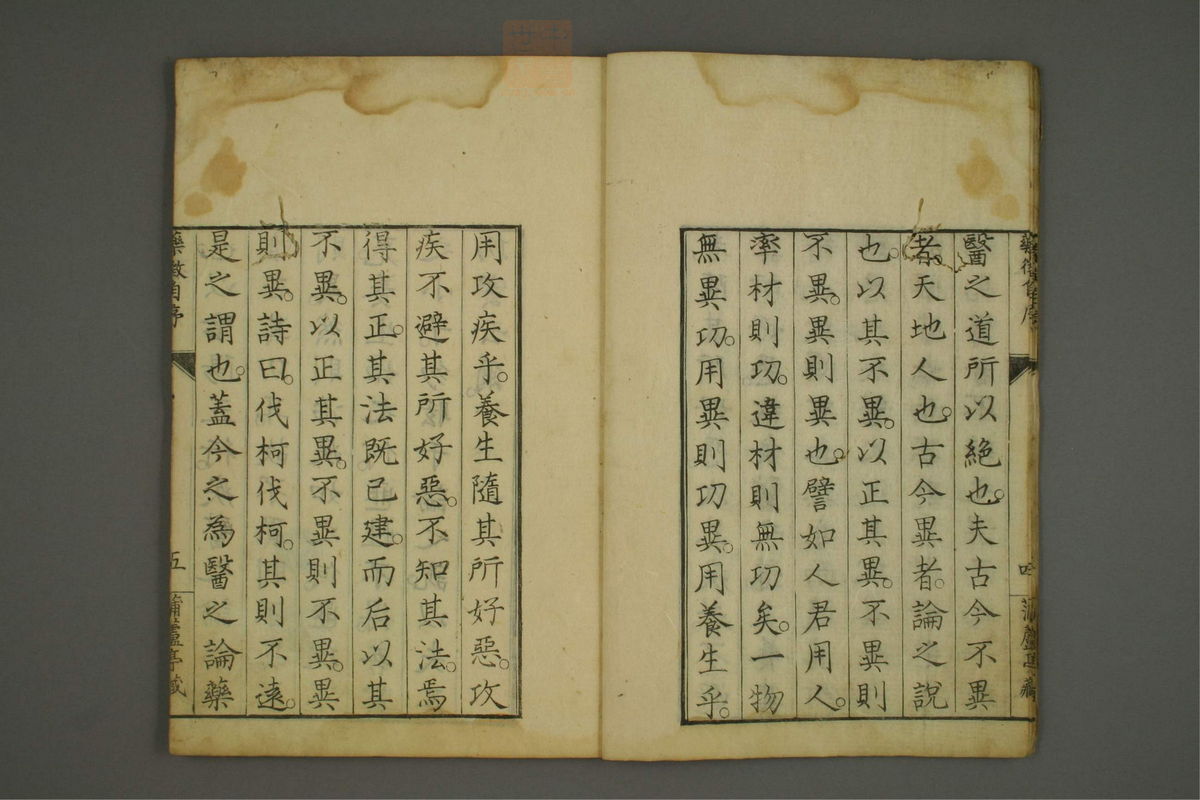 醫之道所以絶也。夫古今不異
者。天地人也。古今異者。論之說
也。以其不異。以正其異。不異則
不異。異則異也。譬如人君用人。
率材則功。違材則無功矣。一物
無異功。用異則功異。用養生乎。
用攻疾乎。養生隨其所好惡。攻
疾不避其所好惡。不知其法。焉
得其正。其法既已建。而后以其
不異。以正其異。不異則不異。異
則異。詩曰。伐柯伐柯。其則不遠。
是之謂也。蓋今之為醫之論藥
藥徴自序
五
蒲盧亭藏